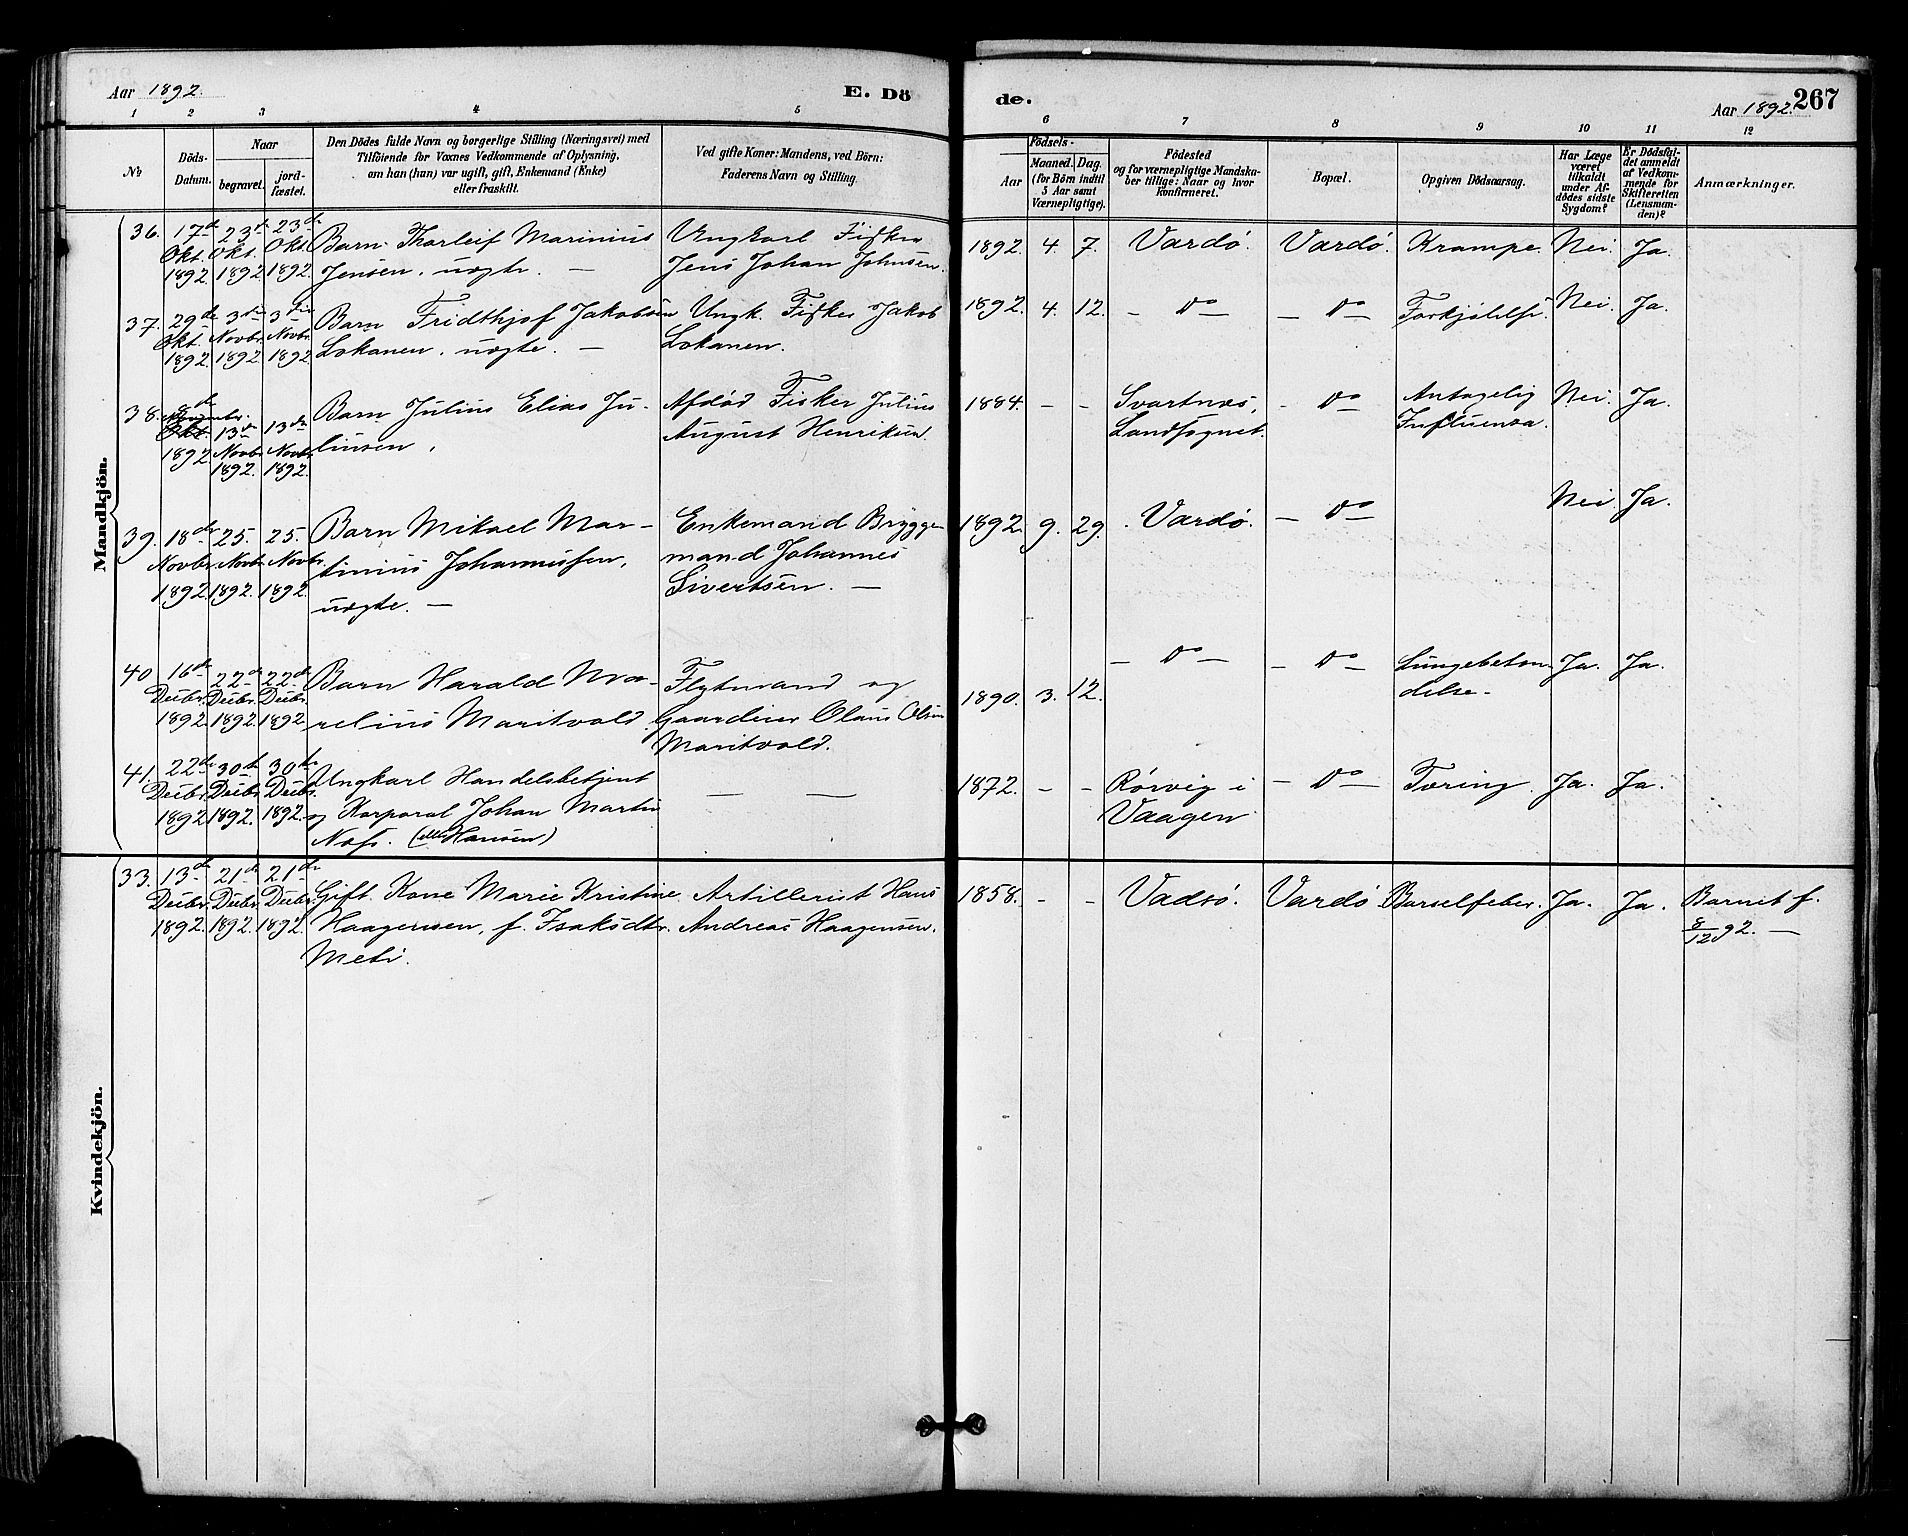 Aar 1892.
E. Dö
de.
Aar 1892. 267
1 2 3 4 5 6 7 8 9 10 11 12
No
Döds-Datum.
Naar
begravet.
jord-fæstet.
Den Dödes fulde Navn og borgerlige Stilling (Næringsvei) med
Tilföiende for Voxnes Vedkommende af Oplysning,
om han (hun) var ugift, gift, Enkemand (Enke)
eller fraskilt.
Ved gifte Koner: Mandens, ved Börn:
Faderens Navn og Stilling.
Födsels-
Aar
Maaned. Dag.
(for Börn indtil
5 Aar samt
Værnepligtige).
Födested
og for værnepligtige Mandska-
ber tillige: Naar og hvor
konfirmeret.
Bopæl.
Opgiven Dödsaarsag.
Har Læge
været
tilkaldt
under Af-
dödes sidste
Sygdom?
Er Dödsfal-
det anmeldt
af Vedkom-
mende for
Skifteretten
(Lensman-
den)?
Anmærkninger.
Mandkjön.
36. 17de Okt. 1892. 23de Okt. 1892 23de Okt 1892. Barn Thorleif Marinius
Jensen, uægte. —
Ungkarl Fisker
Jens Johan Johnsen.
1892. 4. 7. Vardö. Vardö. Krampe. Nei. Ja.
37. 29de Okt. 1892. 3die Novbr. 1892 3die Novbr. 1892 Barn Fridthjof Jakobsen
Lokanen, uægte. —
Ungk. Fisker Jakob
Lokanen.
1892. 4. 12. — Do — — Do — Forkjölelse. Nei. Ja.
38. 8de November. Okt. 1892 13de Novbr. 1892. 13de Novbr. 1892. Barn Julius Elias Ju-
liusen,
Afdöd Fisker Julius
August Henriksen.
1884. — — Svartnæs,
Landsognet.
— Do — Antagelig
Influensa.
Nei. Ja.
39. 18de Novbr. 1892. 25. Novbr. 1892. 25. Novbr. 1892. Barn Mikael Mar-
tinius Johannessen,
uægte. —
Enkemand Brygge-
mand Johannes
Sivertsen. —
1892. 9. 29. Vardö. — Do — Nei Ja.
40 16de Decbr. 1892. 22de Decbr. 1892. 22de Decbr. 1892. Barn Harald
relius Maritvold.
og
Gaardeier Olaus Olsen
Maritvold.
1890. 3. 12. — Do — — Do — Lungebetæn-
delse.
Ja. Ja.
41. 22de Decbr. 1892 30te Decbr. 1892. 30te Decbr. 1892. Ungkarl Handelsbetjent
og Korporal Johan Martin
Næss. (eller Hansen)
— —
1872. — — Rörvig i
Vaagen
— Do — Tæring. Ja. Ja.
Kvindekjön.
33. 13de Decbr. 1892. 21de Decbr. 1892. 21de Decbr. 1892. Gift. Kone Marie Kristine
Haagensen, f. Isaksdtr.
Meti.
Artillerist Hans
Andreas Haagensen.
1858. — — Vadsö. Vardö Barselfeber. Ja. Ja. Barnet f.
8/12 92. —